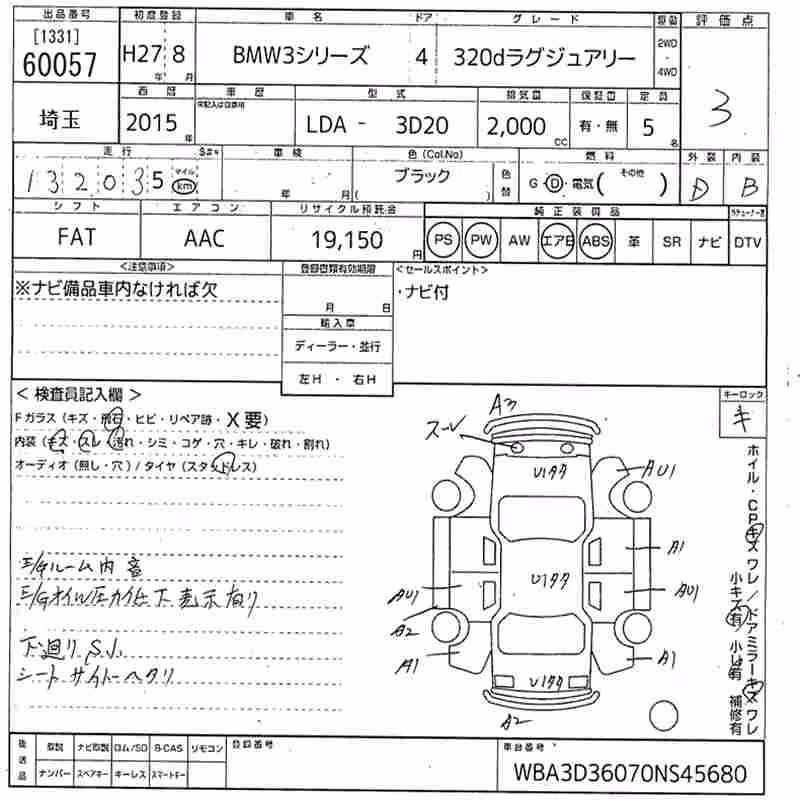 出品番号 初度登録 車名 ドア グレード 評価点
[1331]
60057 H27年 8月 BMW3シリーズ 4 320dラグジュアリー 2WD・4WD 3
埼玉 西暦 車歴 型式 排気量 保証書 定員
未記入は自家用
2015年 LDA - 3D20 2,000cc 有・無 5名
走行 車検 色(Col.No) 燃料 外装 内装
132035 マイル km 年 月 ブラック ( ) 色替 G・D・電気 ( その他 ) D B
シフト エアコン リサイクル預託金 純正装備品
FAT AAC 19,150円 PS PW AW エアB ABS 革 SR ナビ DTV
<注意事項> 登録書類有効期限 <セールスポイント>
※ナビ備品車内なければ欠 ・ナビ付
月 日
輸入車
ディーラー・並行
左H ・ 右H
<検査員記入欄> キーロック
キ
Fガラス (キズ・飛石・ヒビ・リペア跡・X要)
内装 (キズ・スレ・汚れ・シミ・コゲ・穴・キレ・破れ・割れ)
オーディオ (無し・穴) / タイヤ (スタッドレス)
A3
スーレ
Uイタタ
AU1
A1
Uイタタ
AU1 AU1
A2
A1 A1
Uイタタ
A2
E/Gルーム内音
E/Gオイル圧力低下表示有り
下廻りS小
シートサイトーヘタリ
ホイル・CPキズ ワレ / ドアミラーキズ ワレ
小キズ有 / 小凹有 補修有
後送品 取説 ナビ取説 ロム/SD B-CAS リモコン 登録番号 車台番号
ナンバー スペアキー キーレス スマートキー WBA3D36070NS45680